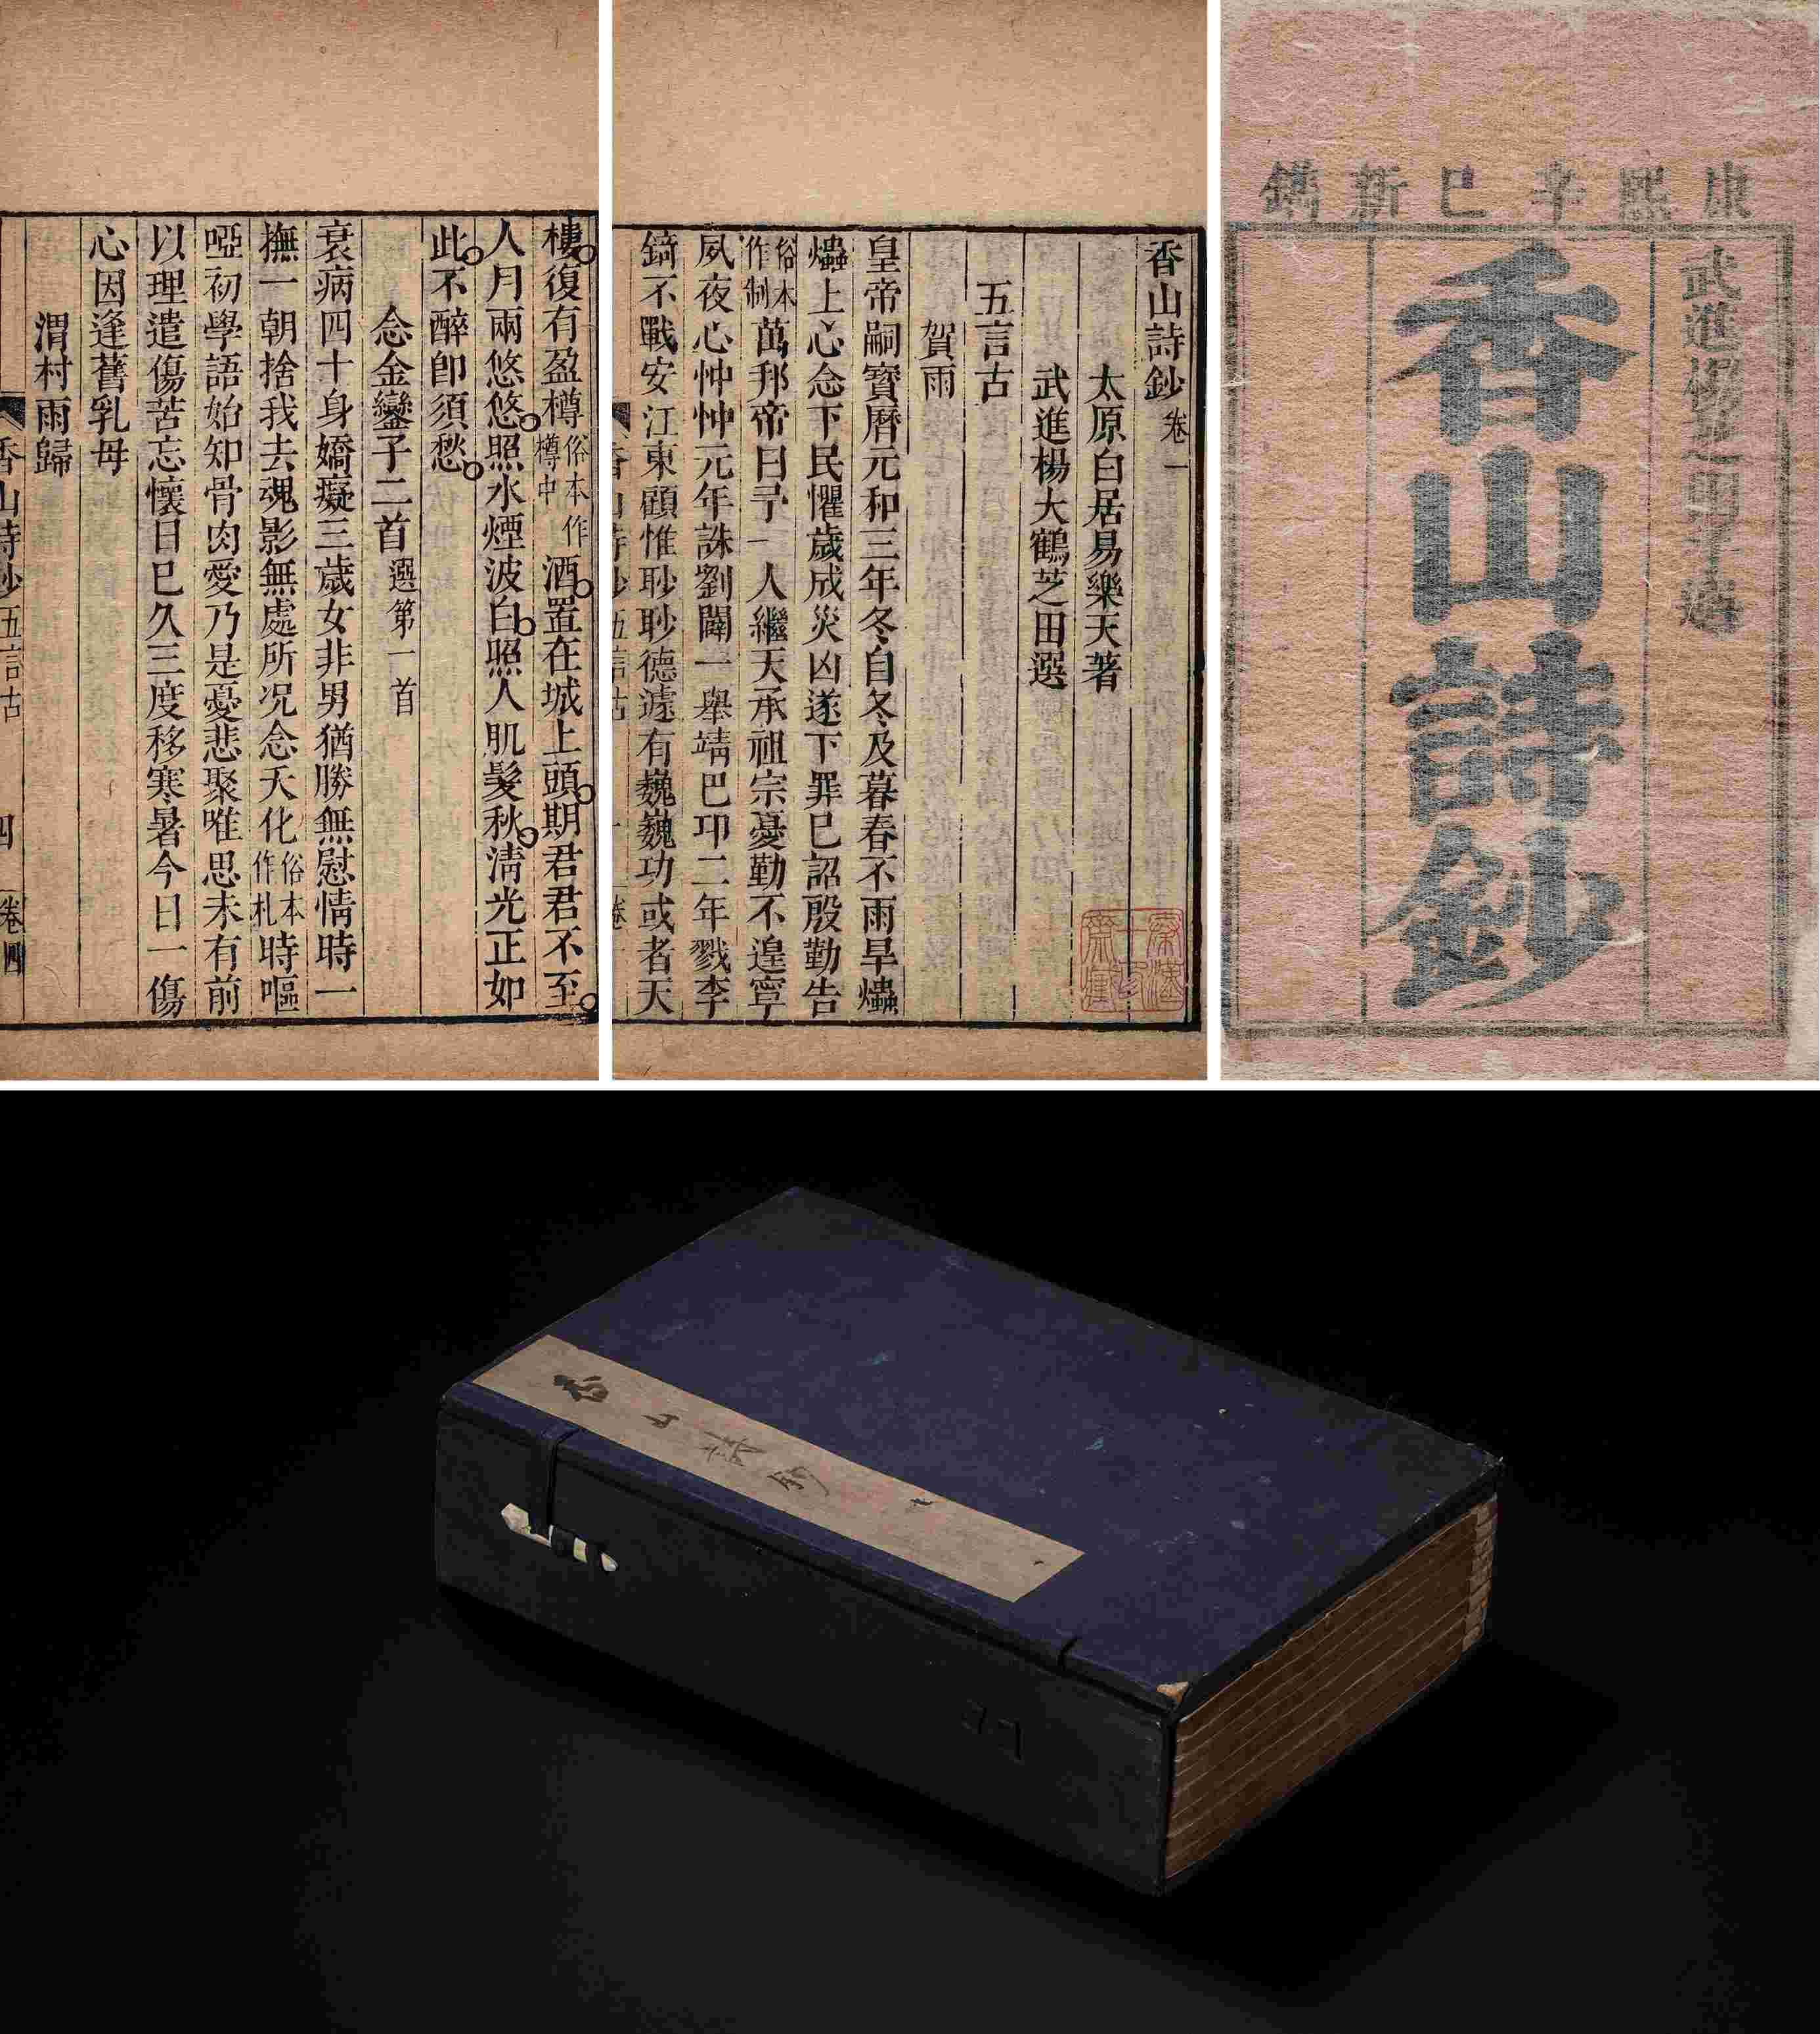 康熙辛巳新鐫
武進楊芝田子選
香山詩鈔
香山詩鈔卷一
太原白居易樂天著
武進楊大鶴芝田選
五言古
賀雨
皇帝嗣寶曆元和三年冬自冬及暮春不雨旱爞
爞上心念下民懼歲成災凶遂下罪已詔殷勤告
俗本作制萬邦帝曰予一人繼天承祖宗憂勤不遑寧
夙夜心忡忡元年誅劉闢一舉靖巴卭二年戮李
錡不戰安江東顧惟眇眇德遽有巍巍功或者天
香山詩鈔 五言古 一 卷一
樓復有盈樽俗本作樽中酒置在城上頭期君君不至
人月兩悠悠照水煙波白照人肌髮秋清光正如
此不醉卽須愁
念金鑾子二首選第一首
衰病四十身嬌癡三歲女非男猶勝無慰情時一
撫一朝捨我去魂影無處所況念夭化俗本作札時嘔
啞初學語始知骨肉愛乃是憂悲聚唯思未有前
以理遣傷苦忘懷日已久三度移寒暑今日一傷
心因逢舊乳母
渭村雨歸
香山詩鈔 五言古 四 卷四
香山詩鈔